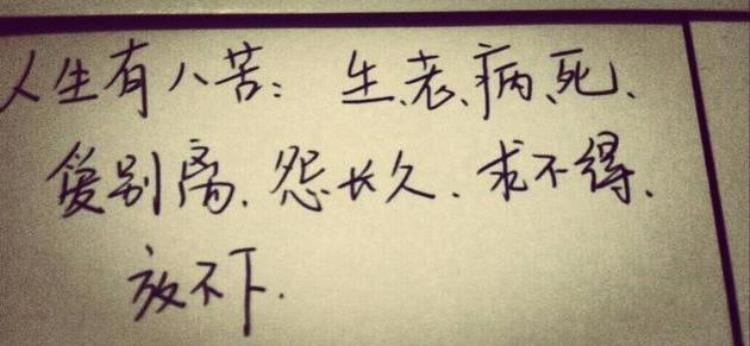 人生有八苦：生、老、病、死、
爱别离、怨长久、求不得、
放不下.